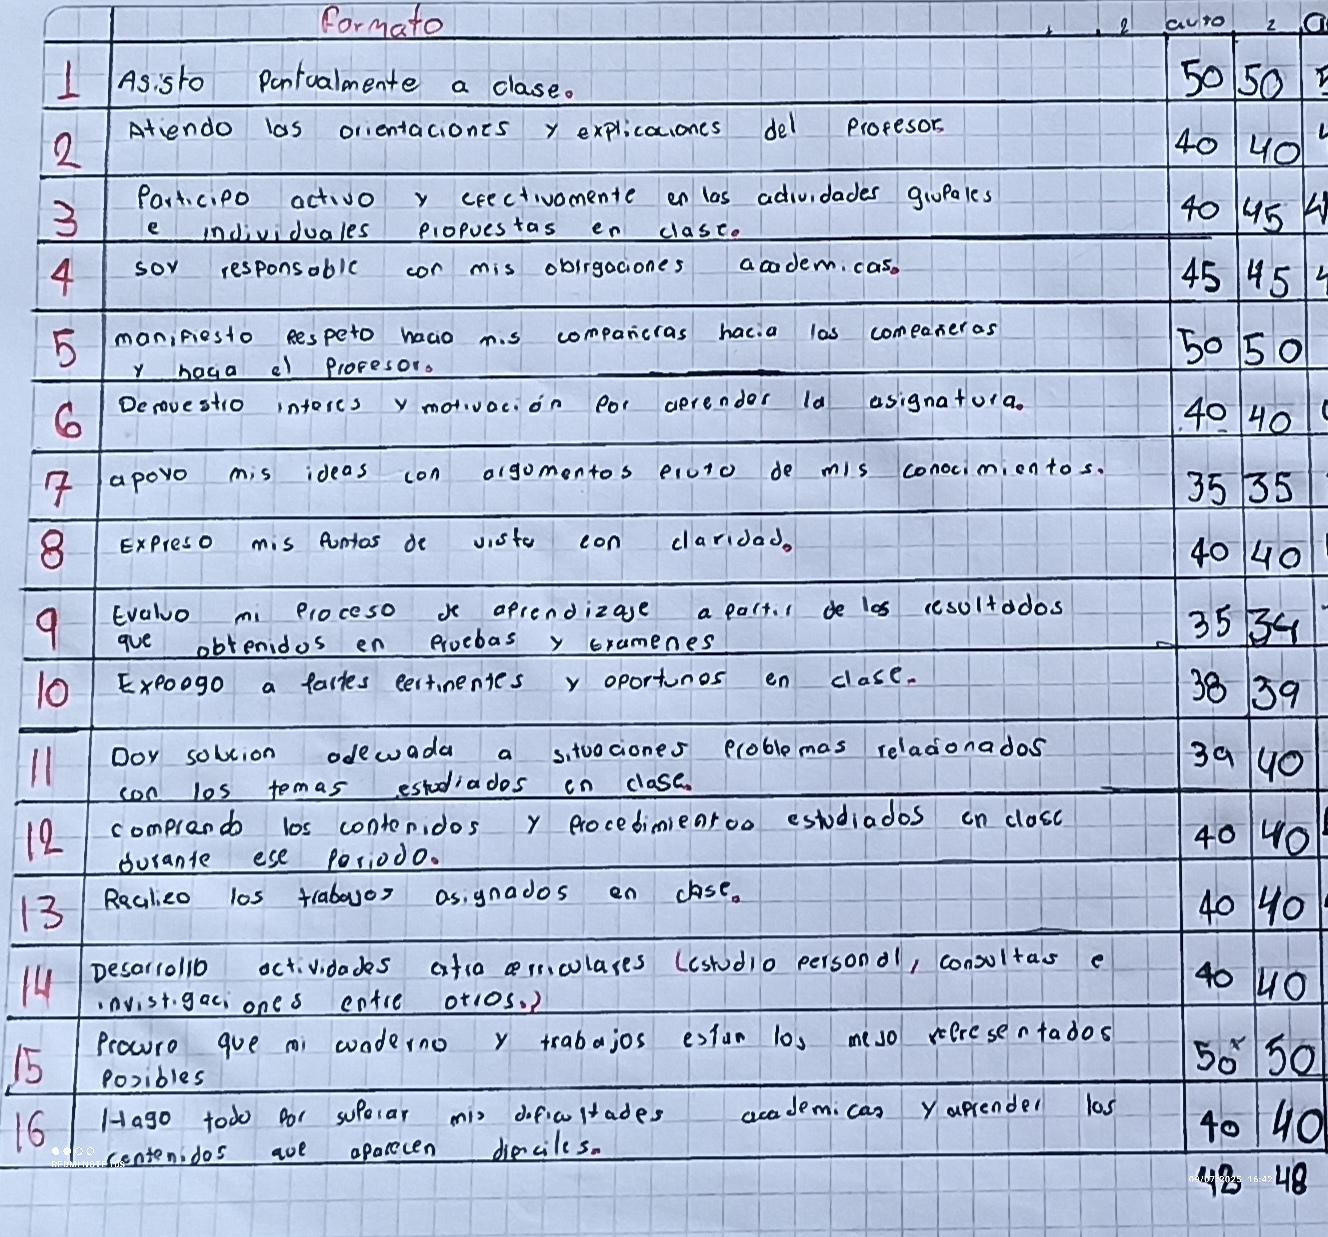 Formato , , 2 auto 2
1 Asisto Pontualmente a clase. 50 50
Atiendo las orientaciones y explicaciones del Profesor.
2 40 40
Participo activo y efectivamente en las actividades grupales
3 e individuales Propuestas en clase. 40 45
4 soy responsable con mis obligaciones academicas. 45 45
manifiesto Respeto hacia mis compañeras hacia las compañeras
5 y hacia el Profesor. 50 50
6 Demuestro interes y motivación Por aprender la asignatura. 40 40
7 apoyo mis ideas con argumentos fruto de mis conocimientos. 35 35
8 Expreso mis Puntos de vista con claridad. 40 40
Evaluo mi Proceso de aprendizaje a partir de los resultados
9 que obtenidos en Pruebas y Examenes 35 34
10 Expongo a Partes Pertinentes y oportunos en clase. 38 39
Doy solucion adecuada a situaciones Problemas relacionados
11 con los temas estudiados en clase. 39 40
12 comprando los contenidos y Procedimientos estudiados en clase 40 40
durante ese Periodo.
13 Realizo los trabajos asignados en clase. 40 40
Desarrollo actividades extra curriculares (estudio personal, consultas e
14 investigaciones entre otros.) 40 40
Procuro que mi cuaderno y trabajos estan los representados
15 Posibles 50 50
16 Hago todo Por superar mis dificultades academicas y aprender los 40 40
contenidos que aparecen dificiles.
48
09/07/2025 16:42